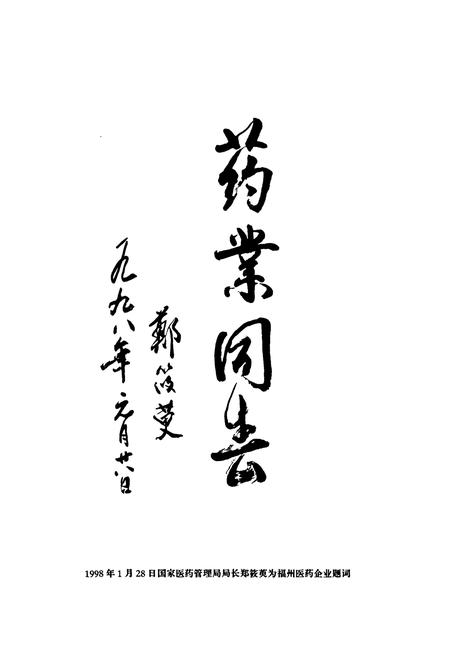 药業同春
鄭筱萸
一九九八年元月廿八日
1998 年 1 月 28 日国家医药管理局局长郑筱萸为福州医药企业题词